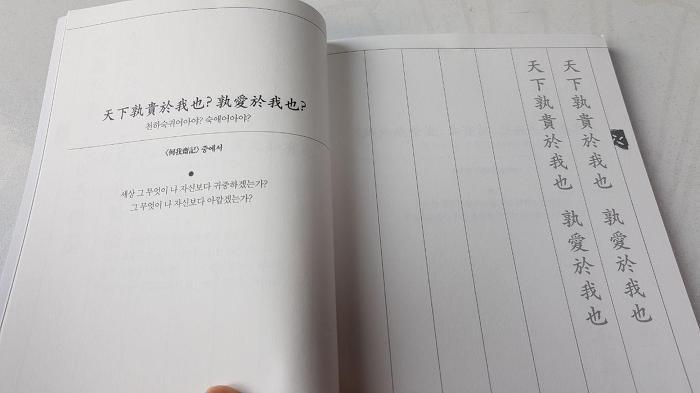 天下孰貴於我也? 孰愛於我也?
천하숙귀어아야? 숙애어아야?
《何我齋記》 중에서
세상 그 무엇이 나 자신보다 귀중하겠는가?
그 무엇이 나 자신보다 아깝겠는가?
天下孰貴於我也 孰愛於我也
天下孰貴於我也 孰愛於我也